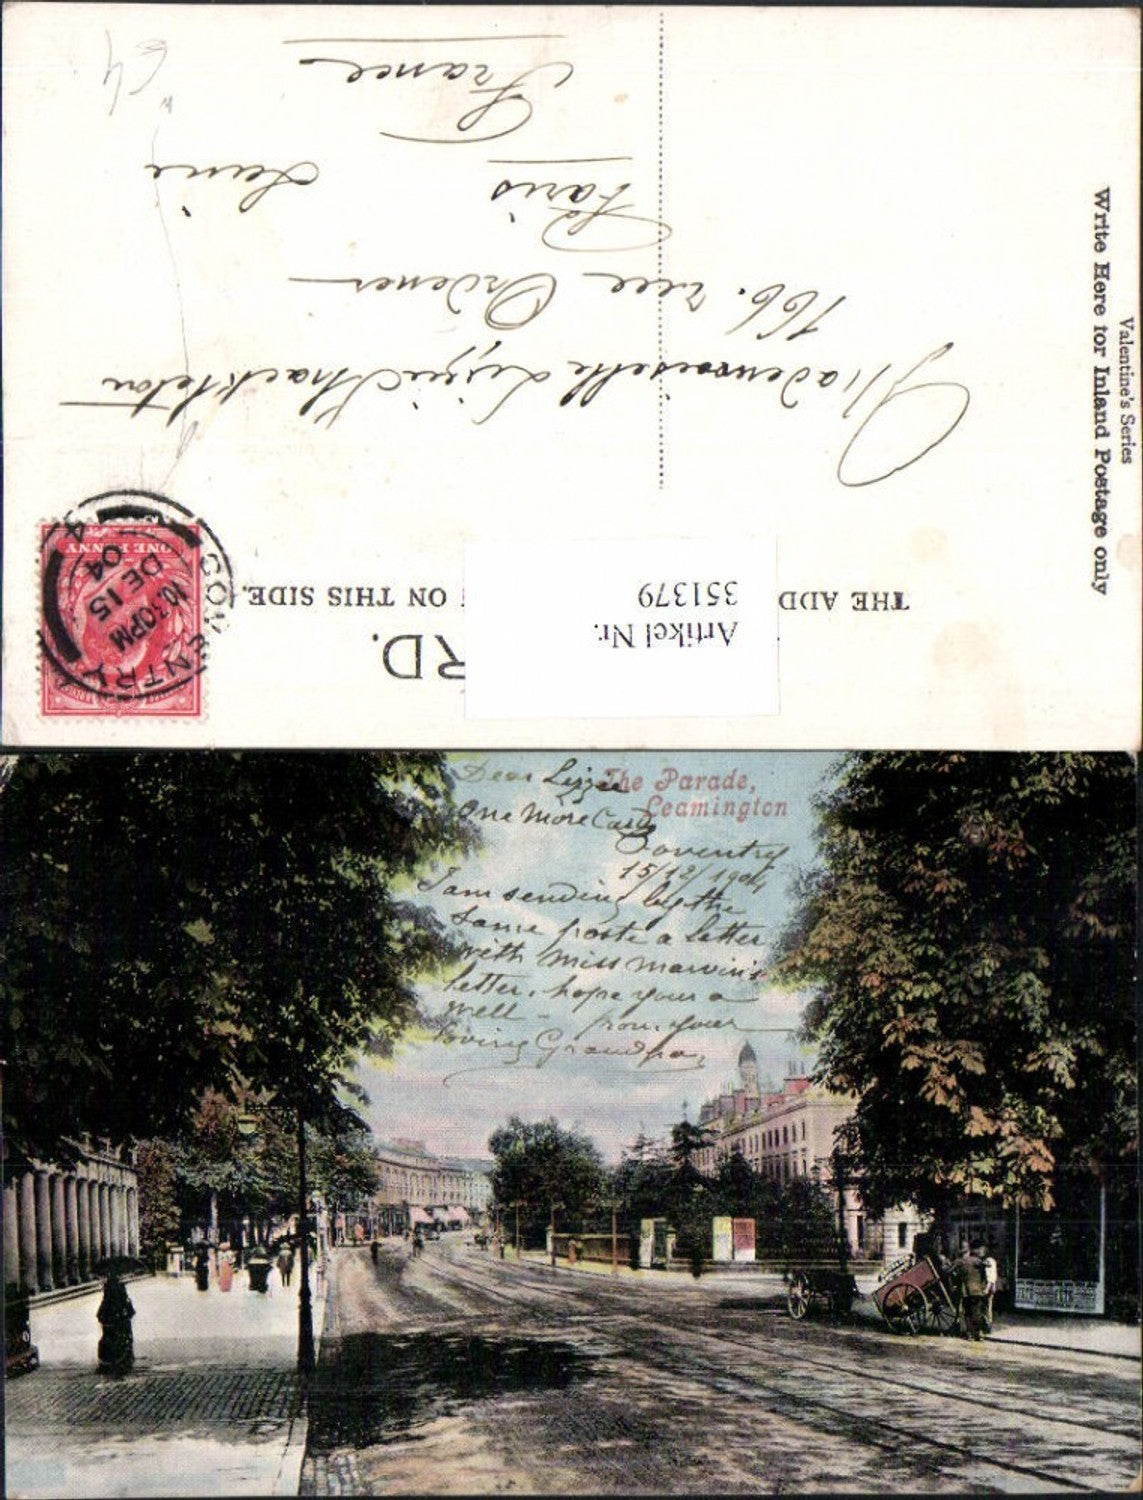 Valentine's Series
Write Here for Inland Postage only
RD.
THE ADD
ON THIS SIDE.
Artikel Nr.
351379
COVENTRY
10.30PM
DE 15
04
ONE PENNY
Mademoiselle Lizzie Shackleton
166. rue Ordener
Paris
Seine
France
64
The Parade,
Leamington
Dear Lizzie
One More Card
Coventry
15/12/1904
I am sending by the
same poste a letter
with Miss Marvin's
letter. hope your a
well - from your
loving Grandpa